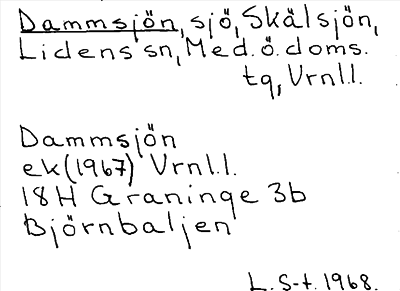 Dammsjön, sjö, Skälsjön,
Lidens sn, Med. ö. doms.
tq, Vrnl.l.
Dammsjön
ek (1967) Vrnl.l.
18H Graninge 3b
Björnbaljen
L. S-t. 1968.